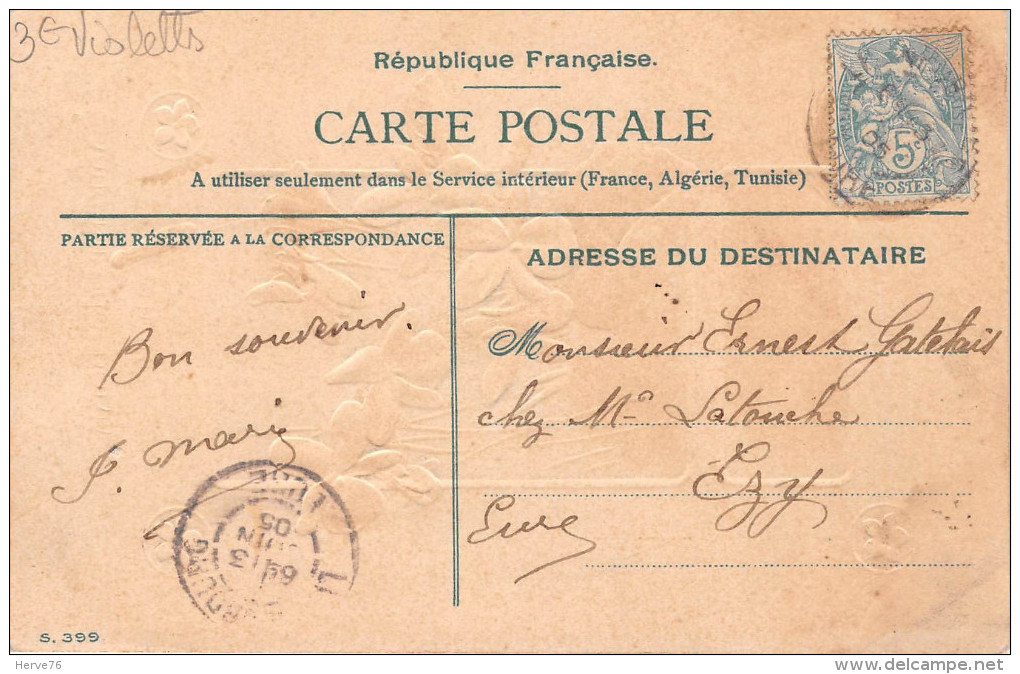 3€ Violetts
République Française.
CARTE POSTALE
A utiliser seulement dans le Service intérieur (France, Algérie, Tunisie)
5c
POSTES
PARTIE RÉSERVÉE A LA CORRESPONDANCE
ADRESSE DU DESTINATAIRE
Bon souvenir.
Marie
Monsieur Ernest Gatelais
chez Mr Latouche
Ezy
Eure
EURE
05
JUIN
13
S. 399
Herve76
delcampe.net